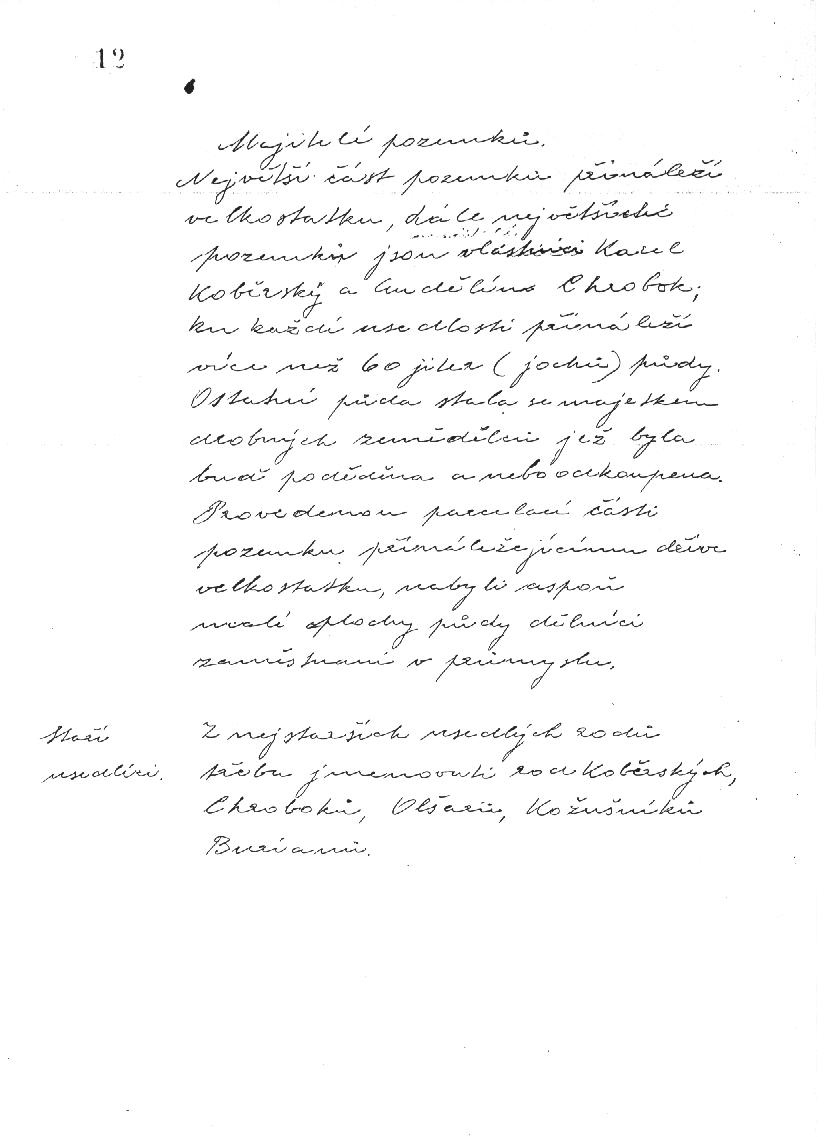 12
Majitelé pozemků.
Největší část pozemků přináleží
velkostatku, dále největšího
pozemků jsou vlástníci Karel
Koběrský a Anděliна Chrobok;
ku každé usedlosti přináleží
více než 60 jiter (jochů) půdy.
Ostatní půda stala se majetkem
drobných zemědělců jež byla
buď poděděna a nebo odkoupena.
Provedenou parcelací části
pozemku přináležejícímu dříve
velkostatku, nabyli aspoň
malé plochy půdy dělníci
zaměstnaní v průmyslu.
Staří
usedlíci.
Z nejstarších usedlých rodů
třeba jmenovati rod Koběrských,
Chroboků, Olšarů, Kožušníků
Burianů.